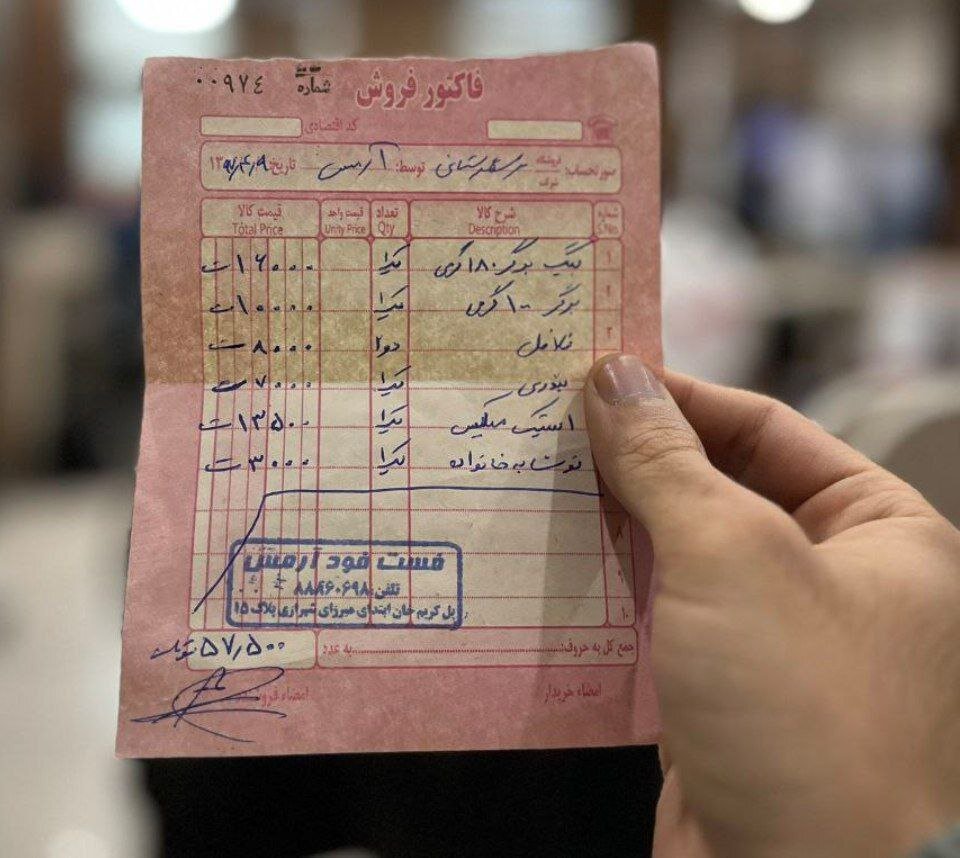 فاکتور فروش
شماره ۰۰۹۷٤
کد اقتصادی
صورتحساب: فروشگاه شرکت توسط: آرمش تاریخ: ۱۳۹۷/۴/۹
شماره S.No. شرح کالا Description تعداد Qty قیمت واحد Unity Price قیمت کالا Total Price
۱ بیگ برگر ۱۸۰ گرمی یکرا ۱۶۰۰۰ ت
۲ برگر ۱۰۰ گرمی یکرا ۱۰۰۰۰ ت
۳ فلافل دوتا ۸۰۰۰ ت
بندری یکرا ۷۰۰۰ ت
استیک میکس یکرا ۱۳۵۰۰ ت
نوشابه خانواده یکرا ۳۰۰۰ ت
۸
۹
۱۰
فست فود آرمش
تلفن: ۸۸۸۶۰۶۹۸
پل کریم خان ابتدای میرزای شیرازی پلاک ۱۵
جمع کل به حروف: به عدد ۵۷٫۵۰۰ تومان
امضاء خریدار امضاء فروشنده